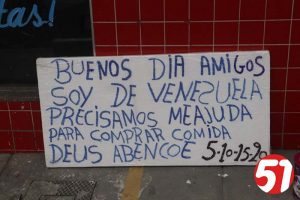 as!
BUENOS DIA AMIGOS
SOY DE VENESUELA
PRECISAMOS MEAJUDA
PARA COMPRAR COMIDA
DEUS ABENCOE 5-10-15-20
51